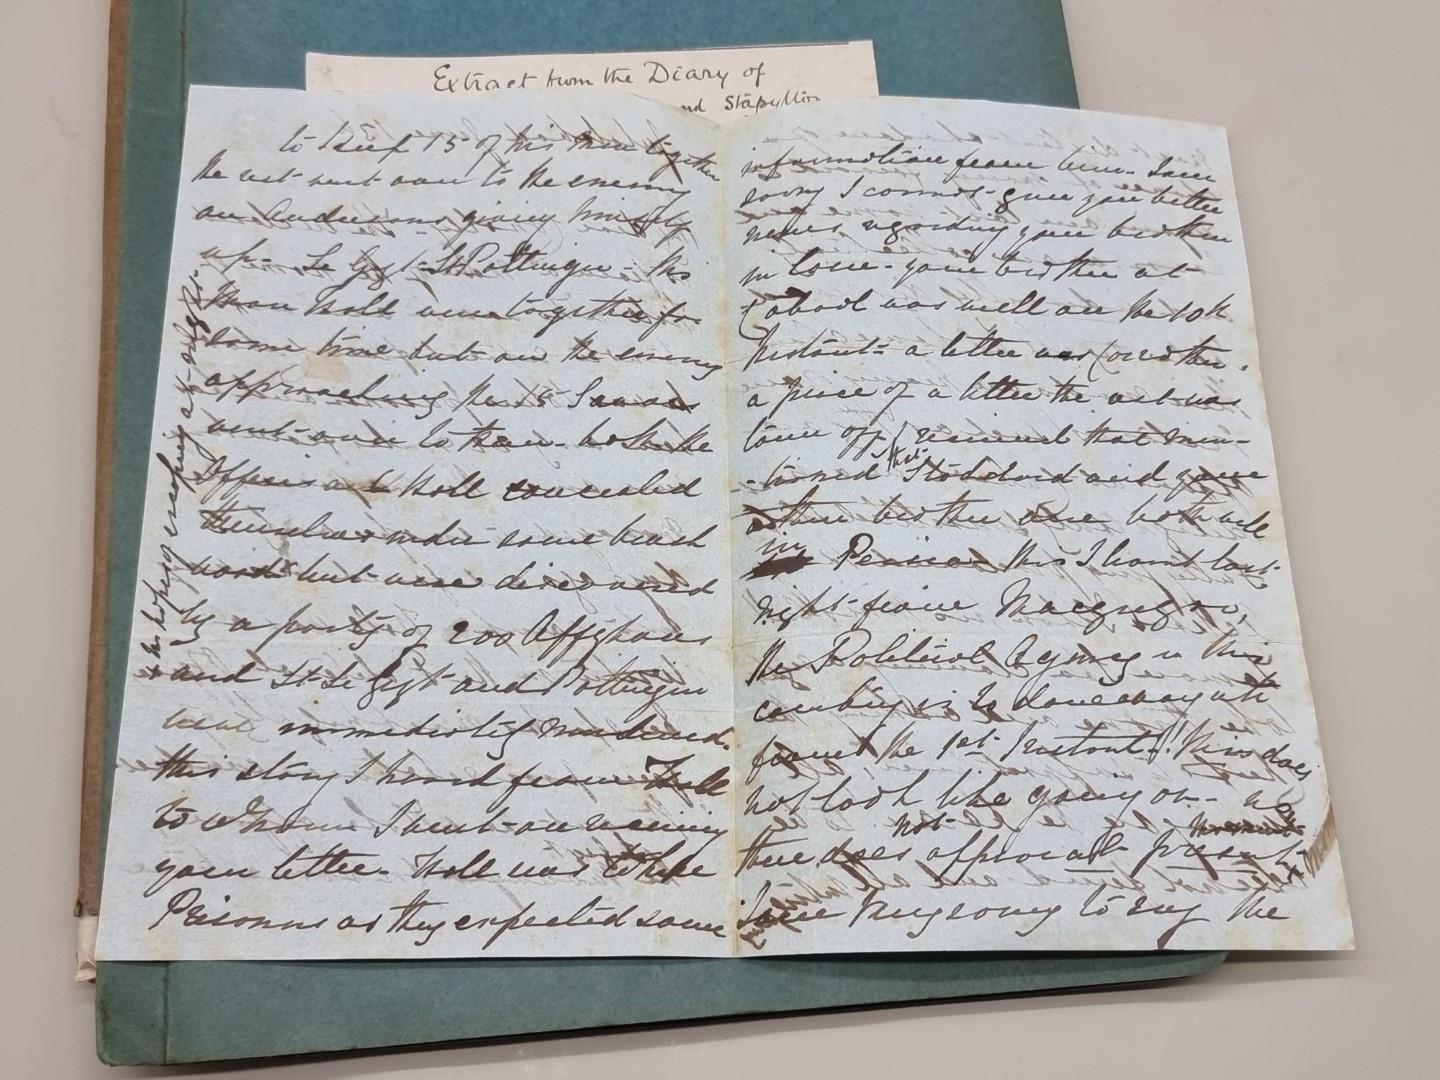 Extract from the Diary of
and Stapylton
to keep 15 of his men together
the rest went over to the enemy
an giving himself
up - Le Gyt - Lt Pottinger - his
man Moll were together for
some time but on the enemy
approaching the 15 Sowars
went over to them - both the
Officers and Moll concealed
themselves under some brush
wood but were discovered
by a party of 200 Affghans
and Lt Le Gyt and Pottinger
were immediately murdered.
this story I heard from Moll
to whom I went on receiving
your letter - Moll was
Prisoner as they expected some
information from him - I am
sorry I cannot give you better
news regarding your brother
in law - your brother at
Cabool was well on the 10th
Instant - a letter was over there,
a piece of a letter the rest was
torn off received that men-
-tioned that Stoddard and your
other brother are both well
in Persia - this I heard last
night from Macgregor,
the Political Agency in this
country is to done away with
from the 1st Instant! this does
not look like going on -
there does not appear at present
I am very sorry to say the